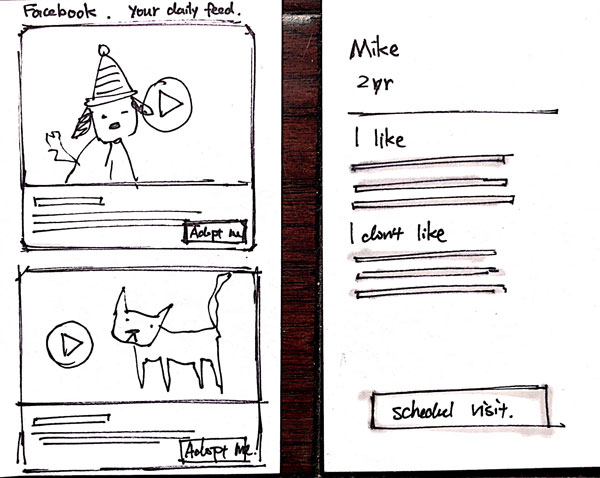 Facebook. Your daily feed.
Adopt me
Adopt me!
Mike
2yr
I like
I don't like
schedul visit.